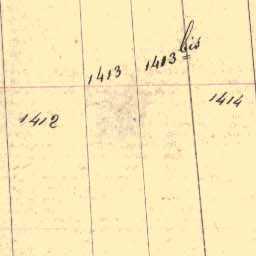 1412
1413
1413 bis
1414